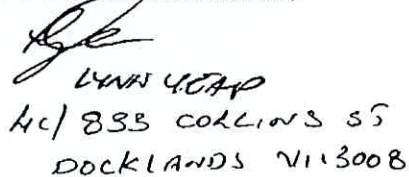 LYNN YEAP
4C/ 833 COLLINS ST
DOCKLANDS VIC 3008